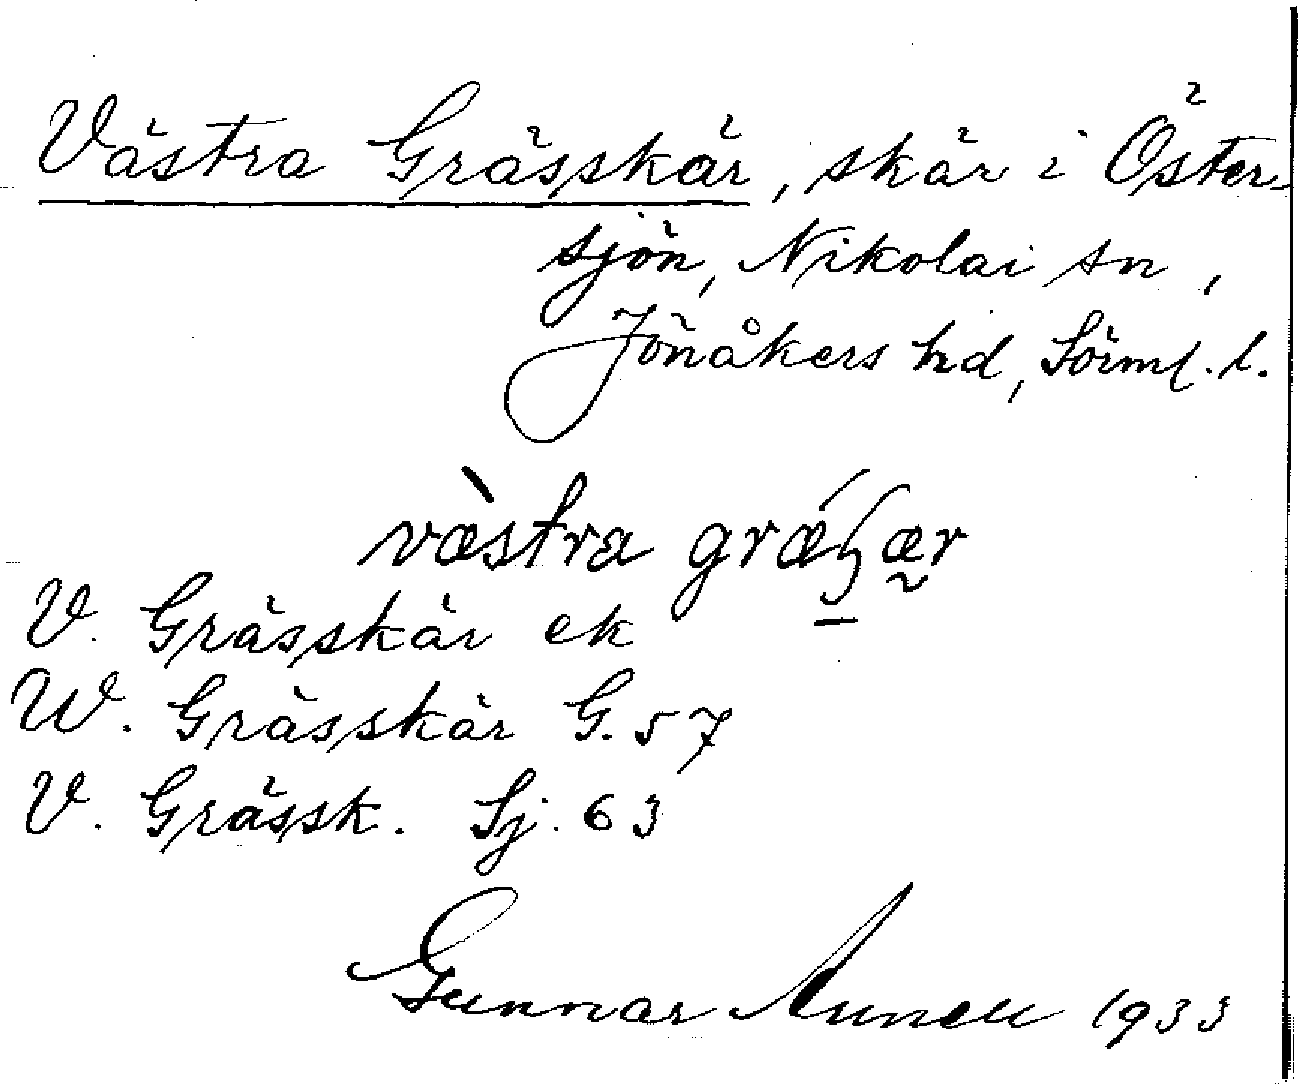 Västra Grässkär, skär i Öster-
sjön, Nikolai sn,
Jönåkers hd, Sörml. l.
væ̀stra grǽ̱ʃæ̰r
V. Grässkär ek
W. Grässkär G. 57
V. Grässk. Sj. 63
Gunnar 1933